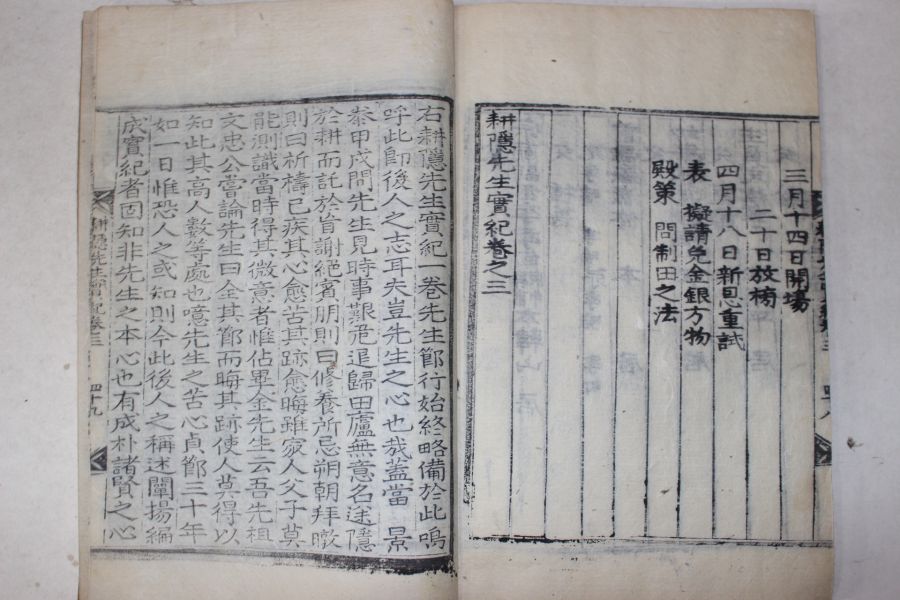 三月十四日開場
二十日放榜
四月十八日新恩重試
表 擬請免金銀方物
殿策 問制田之法
耕隱先生實紀卷之三
四十八
右耕隱先生實紀一卷先生節行始終略備於此嗚
呼此卽後人之志耳夫豈先生之心也哉盖當 景
泰甲戌間先生見時事艱危退歸田廬無意名途隱
於耕而託於盲謝絕賓朋則曰修養所忌朔朝拜暾
則曰祈禱已疾其心愈苦其跡愈晦雖家人父子莫
能測識當時得其微意者惟佔畢金先生云吾先祖
文忠公嘗論先生曰全其節而晦其跡使人莫得以
知此其高人數等處也噫先生之苦心貞節三十年
如一日惟恐人之或知則今此後人之稱述闡揚編
成實紀者固知非先生之本心也有成朴諸賢之心
耕隱先生實紀卷三
四十九